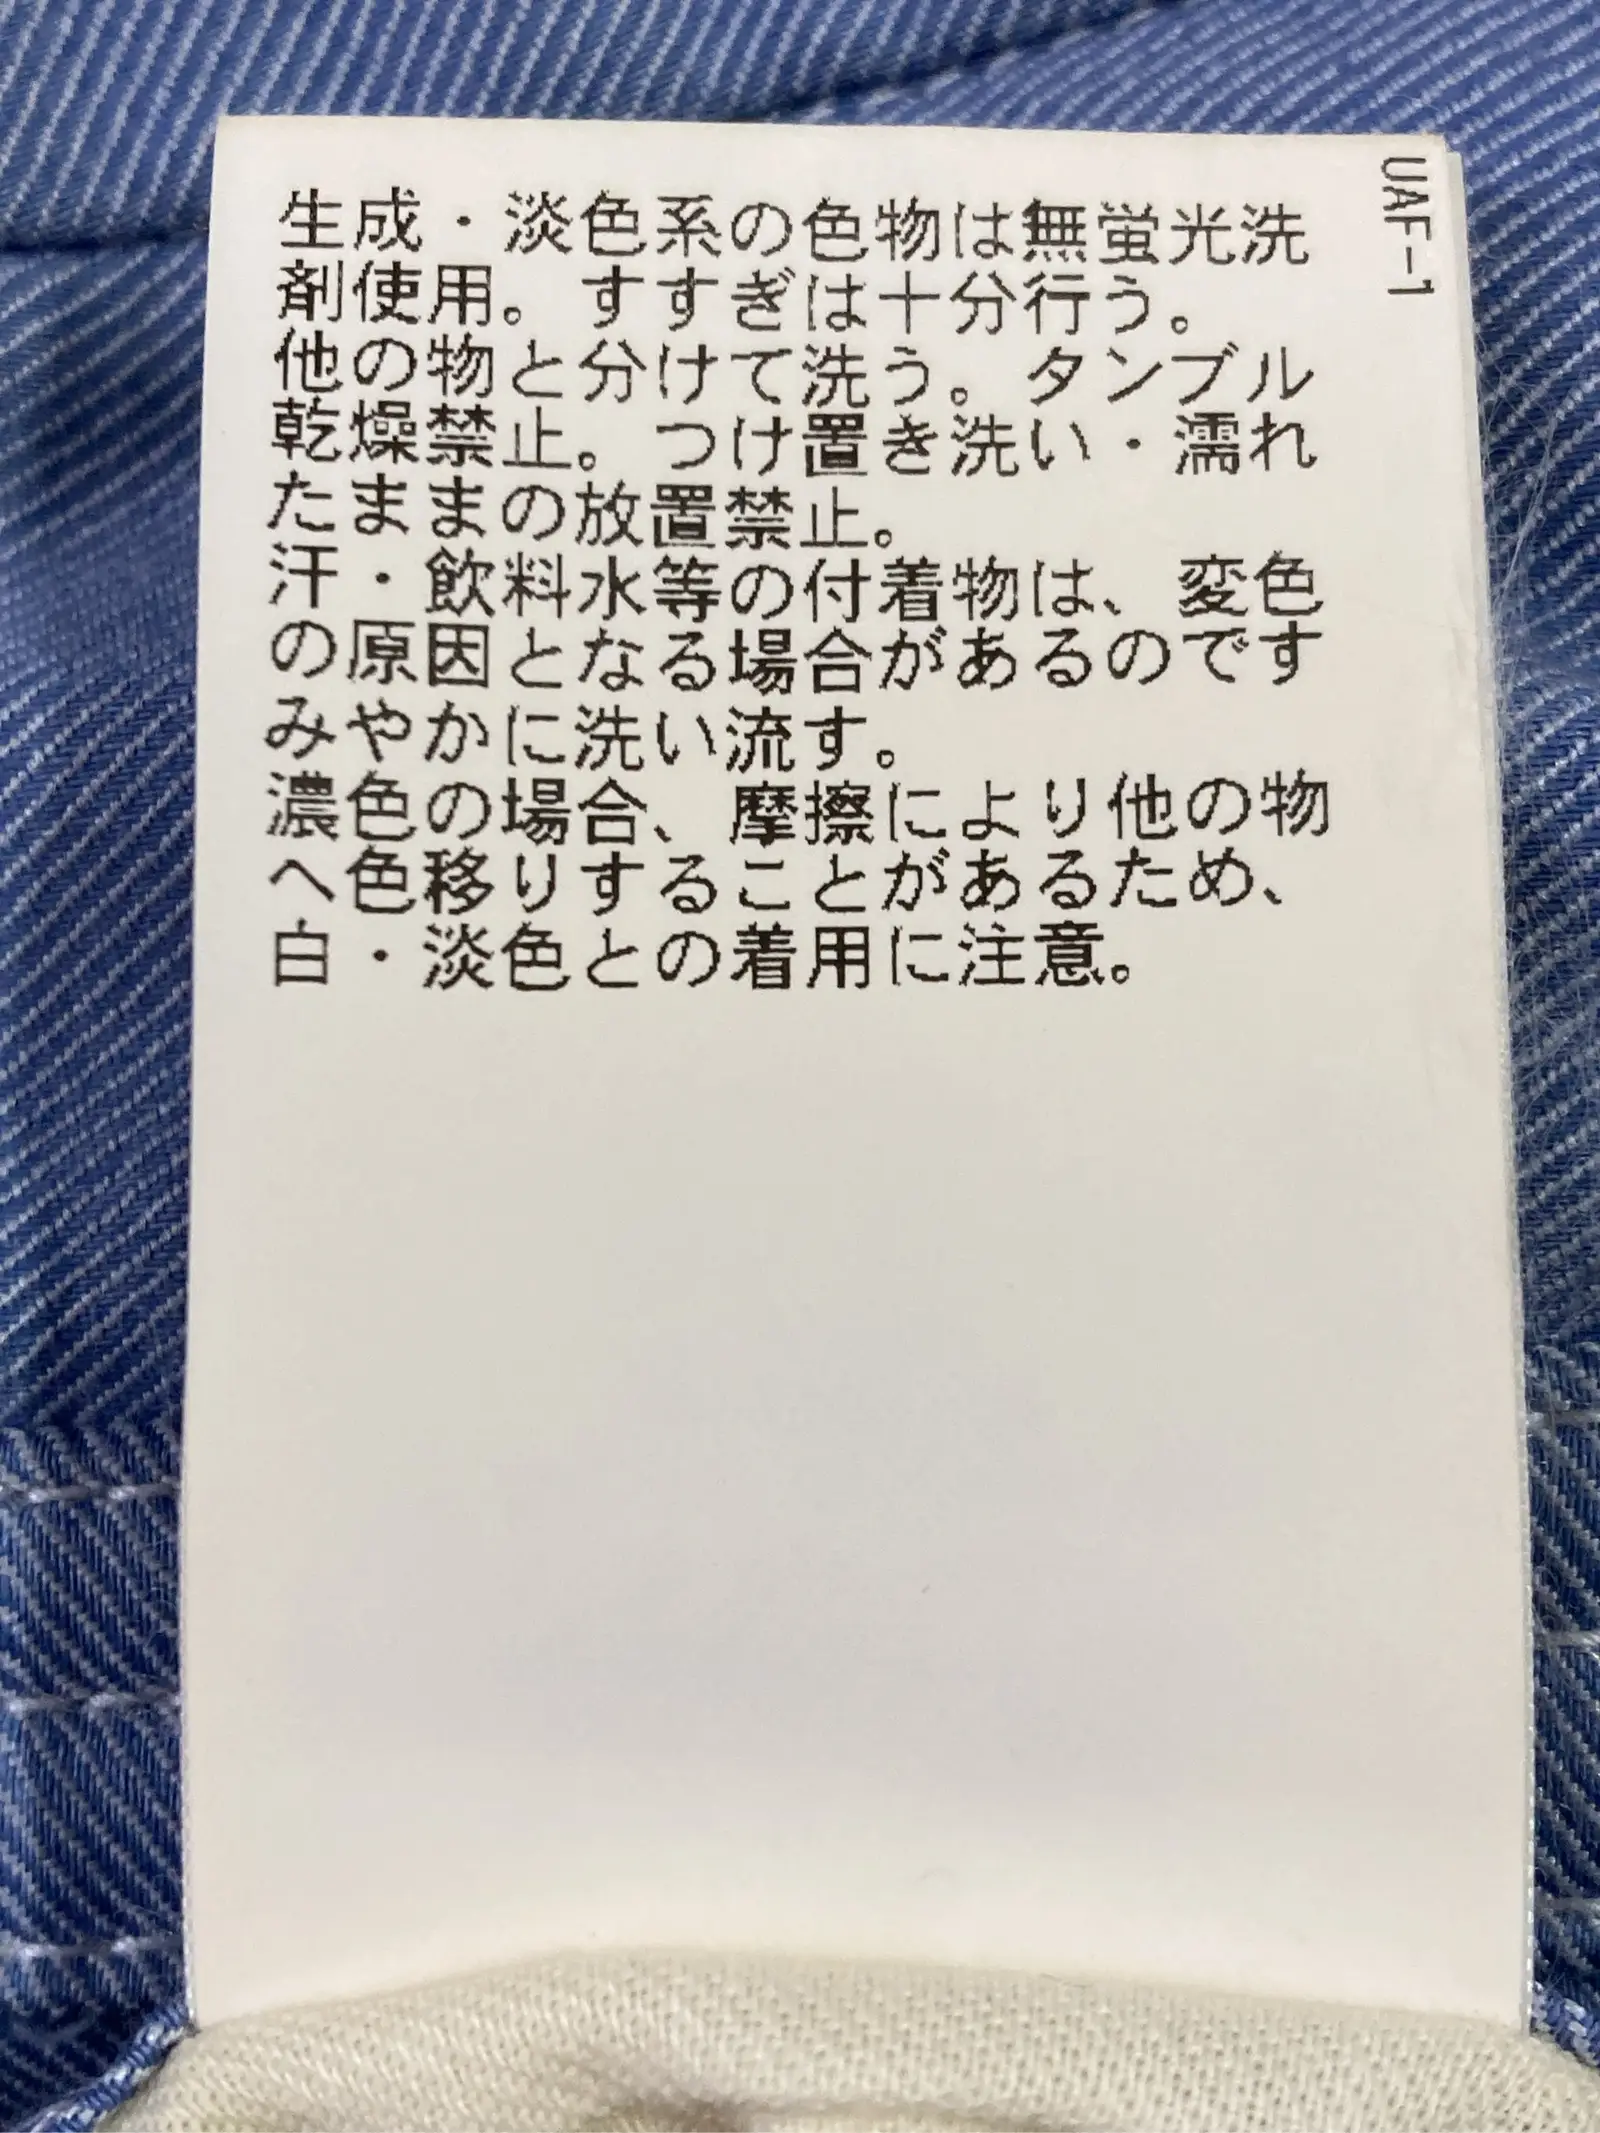 生成・淡色系の色物は無蛍光洗
剤使用。すすぎは十分行う。
他の物と分けて洗う。タンブル
乾燥禁止。つけ置き洗い・濡れ
たままの放置禁止。
汗・飲料水等の付着物は、変色
の原因となる場合があるのです
みやかに洗い流す。
濃色の場合、摩擦により他の物
へ色移りすることがあるため、
白・淡色との着用に注意。
UAF-1